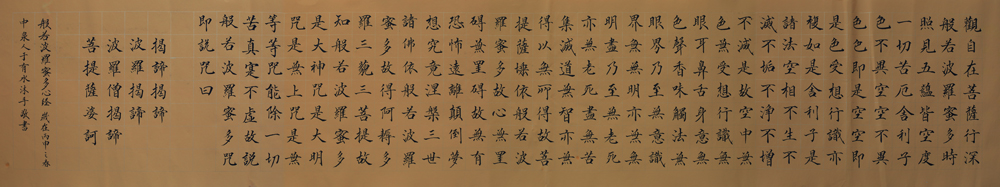 觀自在菩薩行深
般若波羅蜜多時
照見五蘊皆空度
一切苦厄舍利子
色不異空空不異
色色即是空空即
是色受想行識亦
複如是舍利子是
諸法空相不生不
滅不垢不淨不增
不減是故空中無
色無受想行識無
眼耳鼻舌身意無
色聲香味觸法無
眼界乃至無意識
界無無明亦無無
明盡乃至無老死
亦無老死盡無苦
集滅道無智亦無
得以無所得故菩
提薩埵依般若波
羅蜜多故心無罣
礙無罣礙故無有
恐怖遠離顛倒夢
想究竟涅槃三世
諸佛依般若波羅
蜜多故得阿耨多
羅三藐三菩提故
知般若波羅蜜多
是大神咒是大明
咒是無上咒是無
等等咒能除一切
苦真實不虛故說
般若波羅蜜多咒
即說咒曰
揭諦揭諦
波羅揭諦
波羅僧揭諦
菩提薩婆訶
般若波羅蜜多心經 歲在丙申之春
中泉人于育水沐手敬書